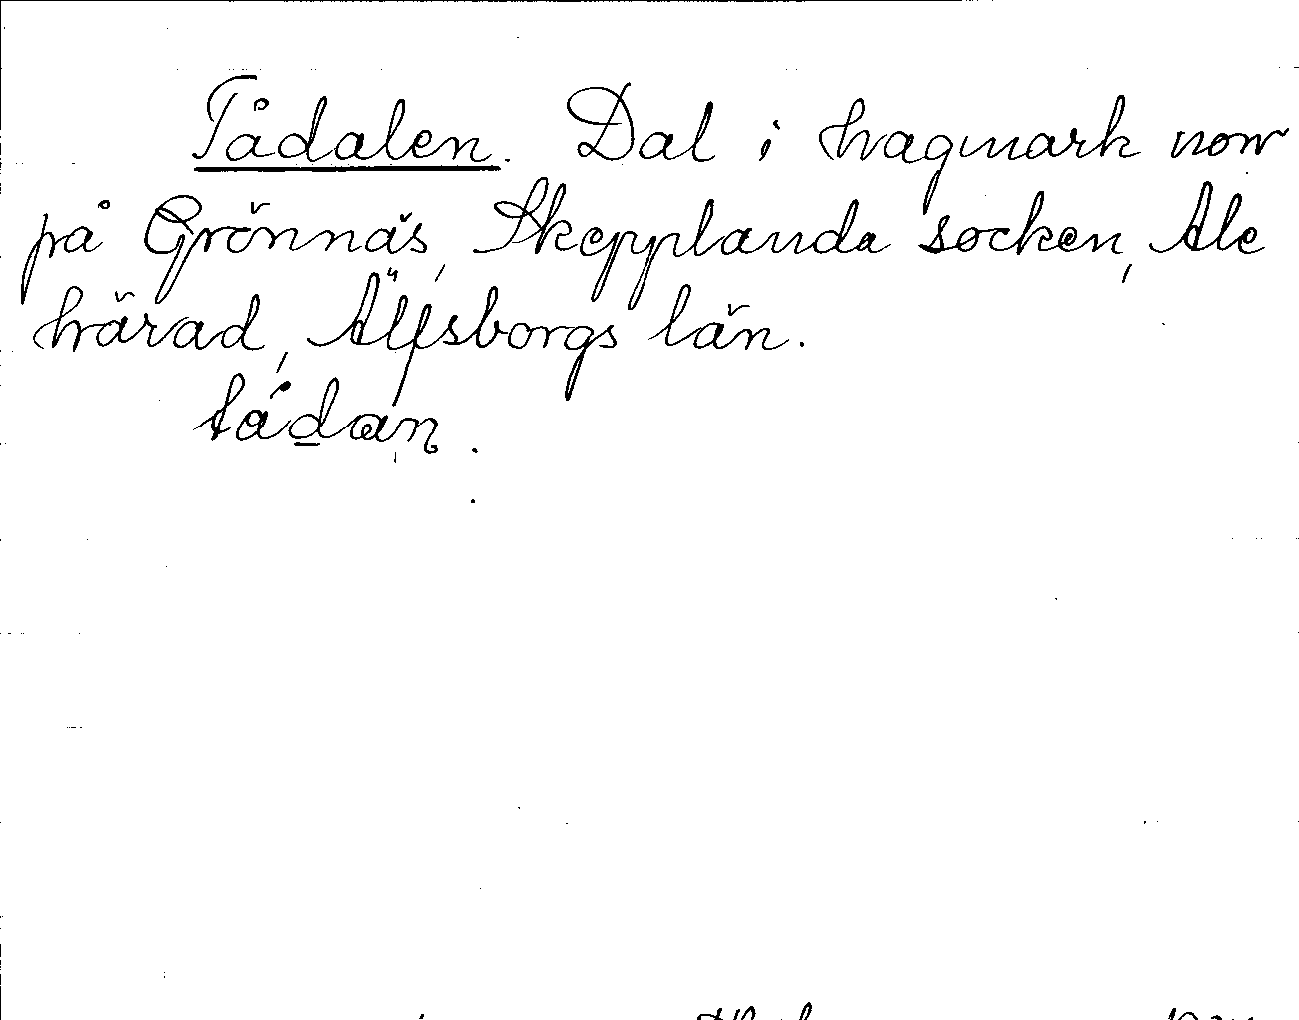 Tådalen. Dal i hagmark norr
på Grönnäs, Skepplanda socken, Ale
härad, Älfsborgs län.
tådan.